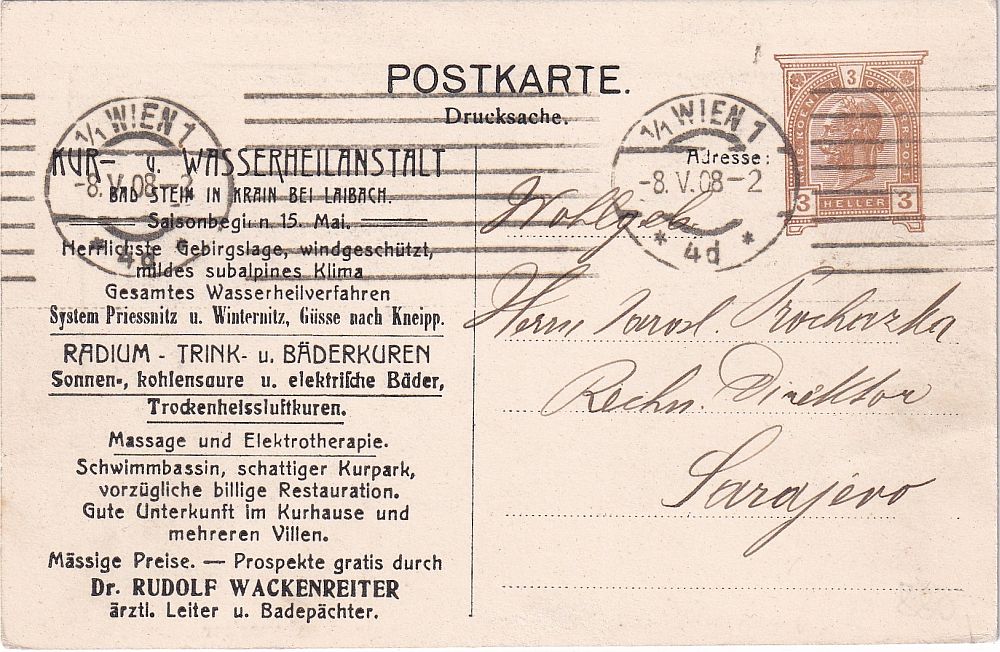 POSTKARTE.
Drucksache.
1/1 WIEN 1
-8.V.08-2
* 4d *
1/1 WIEN 1
-8.V.08-2
* 4d *
3
KAIS. KOEN. OESTERR. POST
3 HELLER 3
KUR- u. WASSERHEILANSTALT
BAD STEIN IN KRAIN BEI LAIBACH.
Saisonbeginn 15. Mai.
Herrlichste Gebirgslage, windgeschützt,
mildes subalpines Klima
Gesamtes Wasserheilverfahren
System Priessnitz u. Winternitz, Güsse nach Kneipp.
RADIUM - TRINK- u. BÄDERKUREN
Sonnen-, kohlensaure u. elektrische Bäder,
Trockenheissluftkuren.
Massage und Elektrotherapie.
Schwimmbassin, schattiger Kurpark,
vorzügliche billige Restauration.
Gute Unterkunft im Kurhause und
mehreren Villen.
Mässige Preise. — Prospekte gratis durch
Dr. RUDOLF WACKENREITER
ärztl. Leiter u. Badepächter.
Adresse:
Wohlgeb
Herrn Jarosl. Prochazka
Rechn. Direktor
Sarajevo